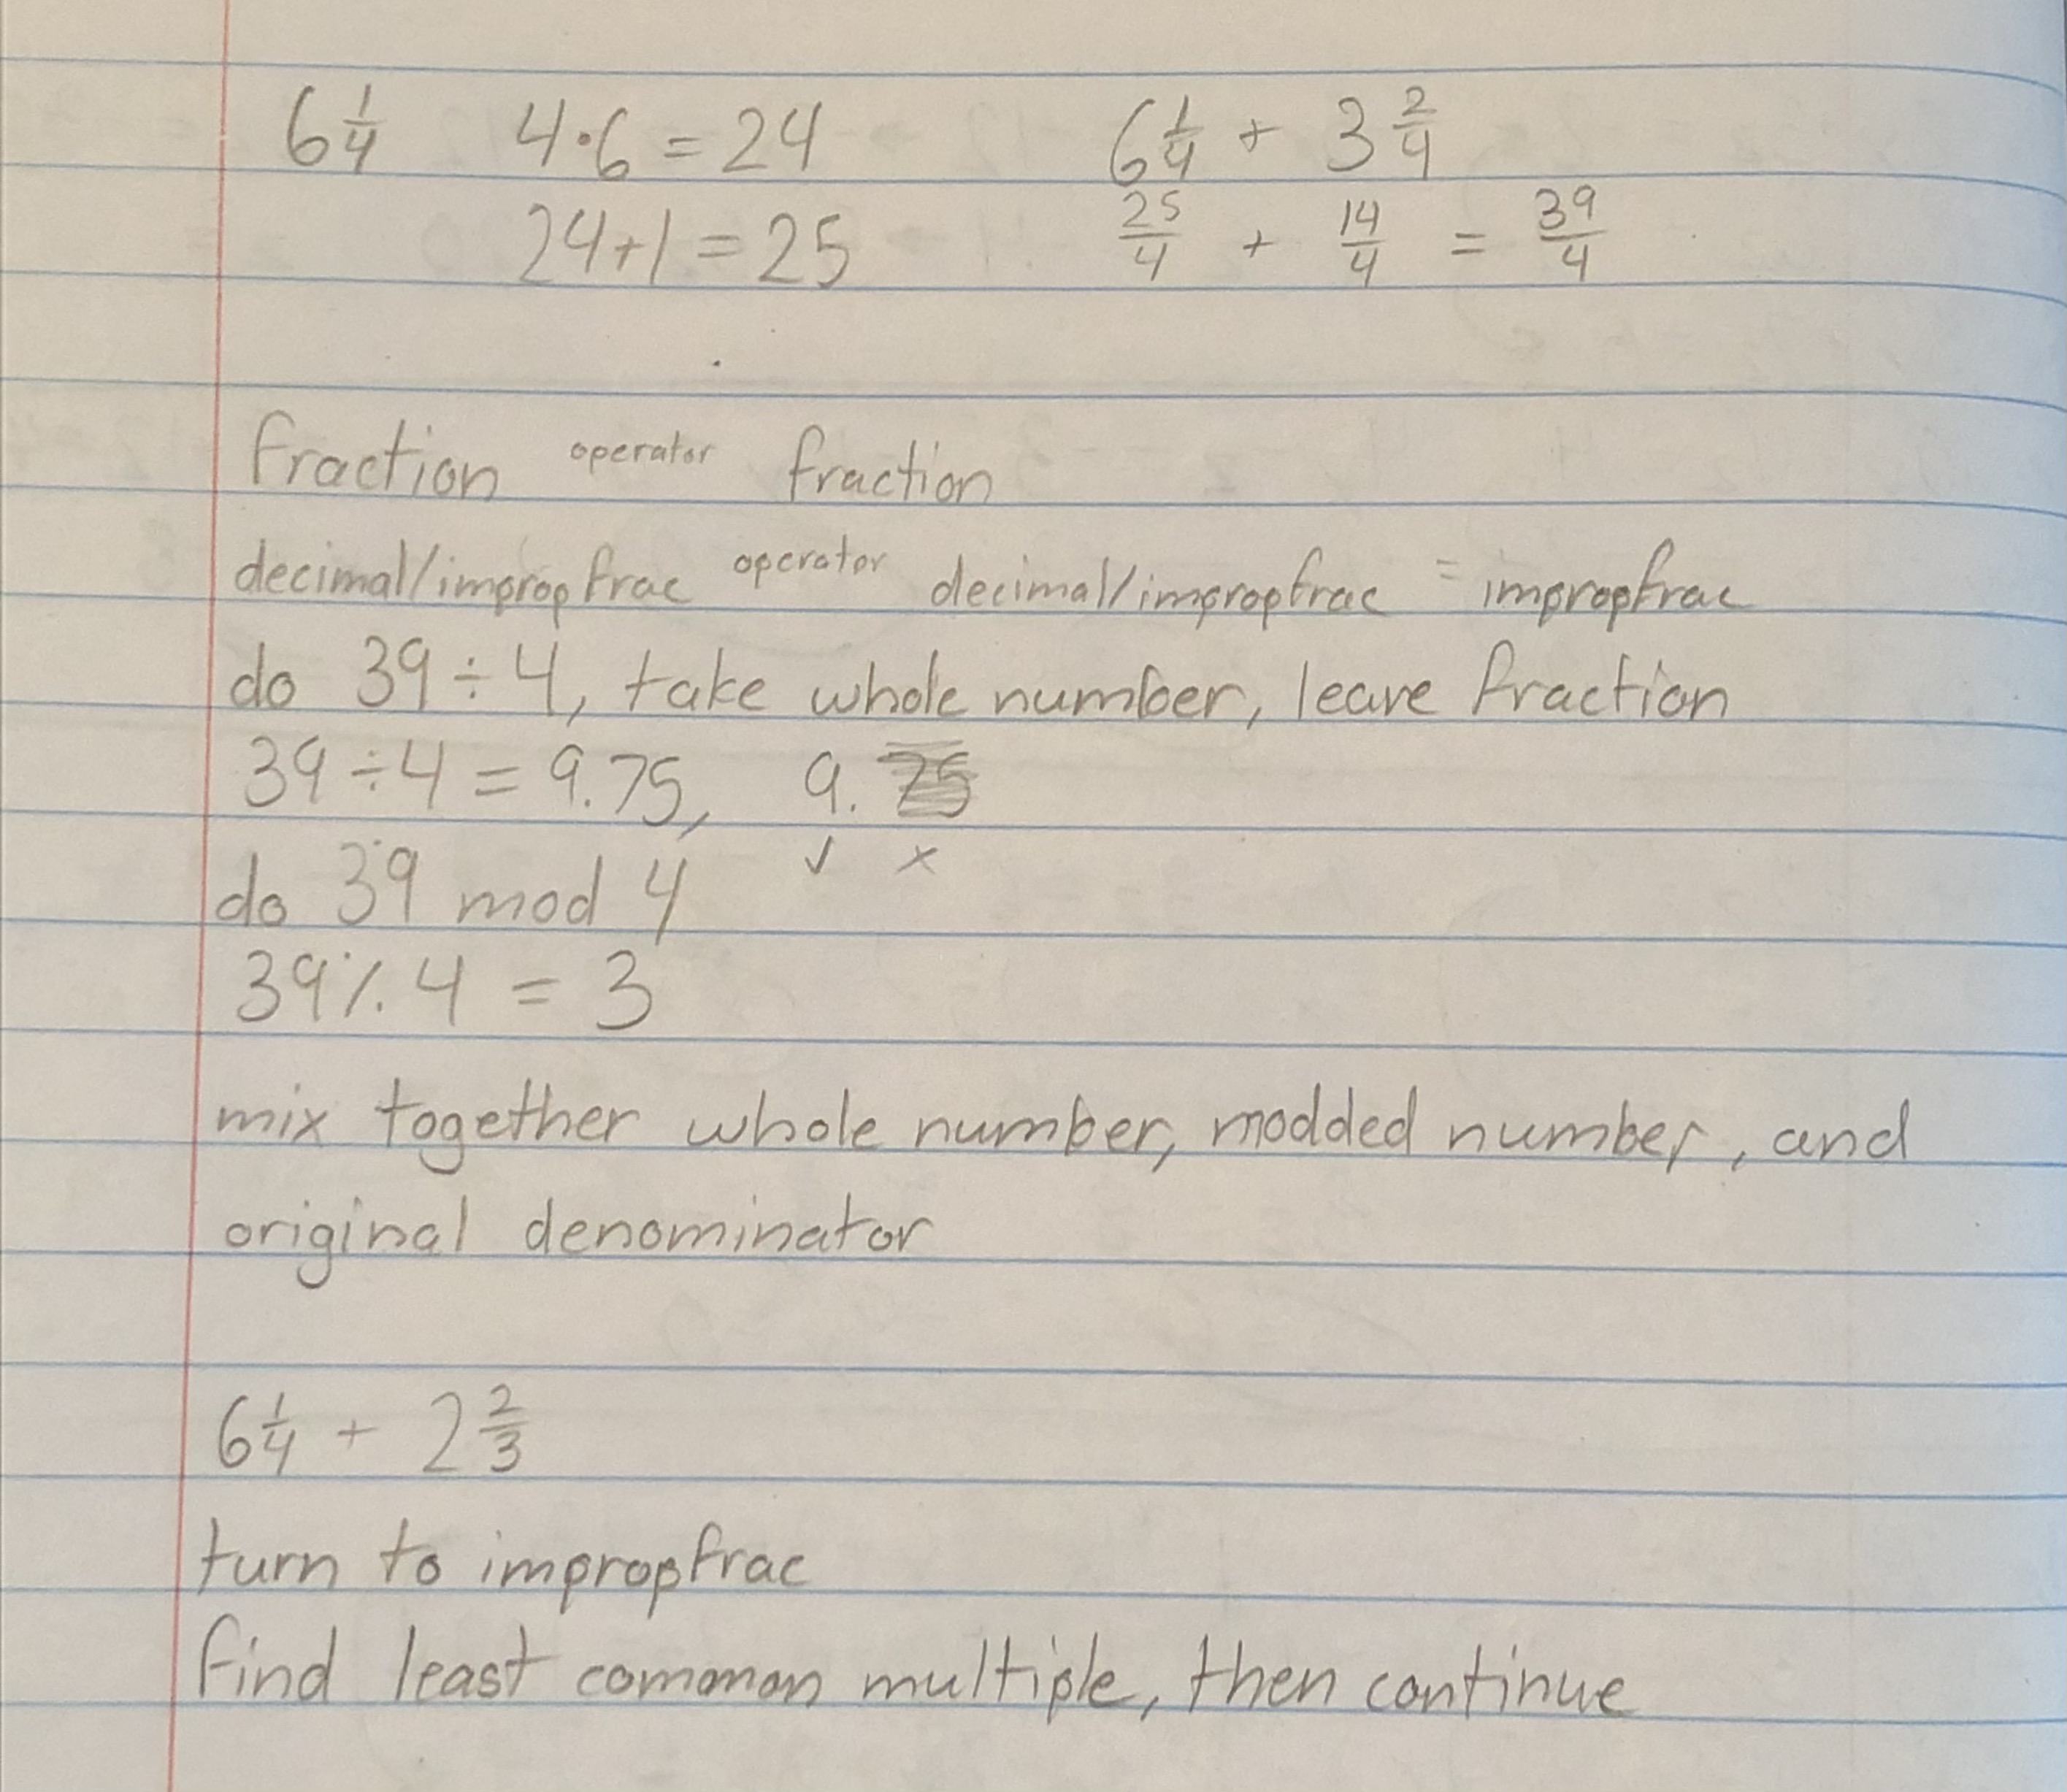 6 1/4    4·6 = 24    6 1/4 + 3 2/4
24+1 = 25    25/4 + 14/4 = 39/4
fraction operator fraction
decimal/impropfrac operator decimal/impropfrac = impropfrac
do 39 ÷ 4, take whole number, leave fraction
39 ÷ 4 = 9.75, 9. 75
✓ ×
do 39 mod 4
39 % 4 = 3
mix together whole number, modded number, and
original denominator
6 1/4 + 2 2/3
turn to impropfrac
find least common multiple, then continue